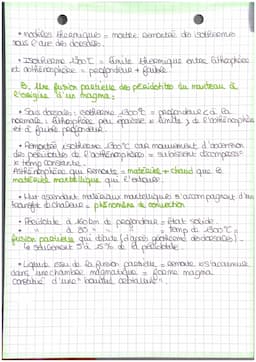 • modèles thermiques = montre remontée des isothermes
sous l'axe des dorsales.
• Isotherme 1300°C = limite thermique entre lithosphère
et asthénosphère = profondeur + faible.
B. Une fusion partielle des péridotites du manteau à
l'origine d'un magma:
• Sous dorsale: isotherme 1300°C = profondeur < à la
normale: lithosphère peu épaisse = limite de l'asthénosphère
est à faible profondeur.
• Remontée isotherme 1300°C car mouvement d'ascension
des péridotites de l'asthénosphère = subissent décompress°
à temp constante.
Asthénosphère qui remonte = matériau + chaud que le
matériel mantellique qui l'entoure.
• Mvt ascendant matériaux mantelliques s'accompagnent d'un
transfert de chaleur = phénomène de convection
• Péridotite à 160 km de profondeur = état solide.
à 80 = temp de 1300°C =
fusion partielle qui débute (d'après géotherme des dorsales)
seulement 5 à 15% de la péridotite.
• Liquide issu de la fusion partielle = remonte et s'accumule
dans une chambre magmatique = forme magma
constitué d'une "bouillie cristalline".